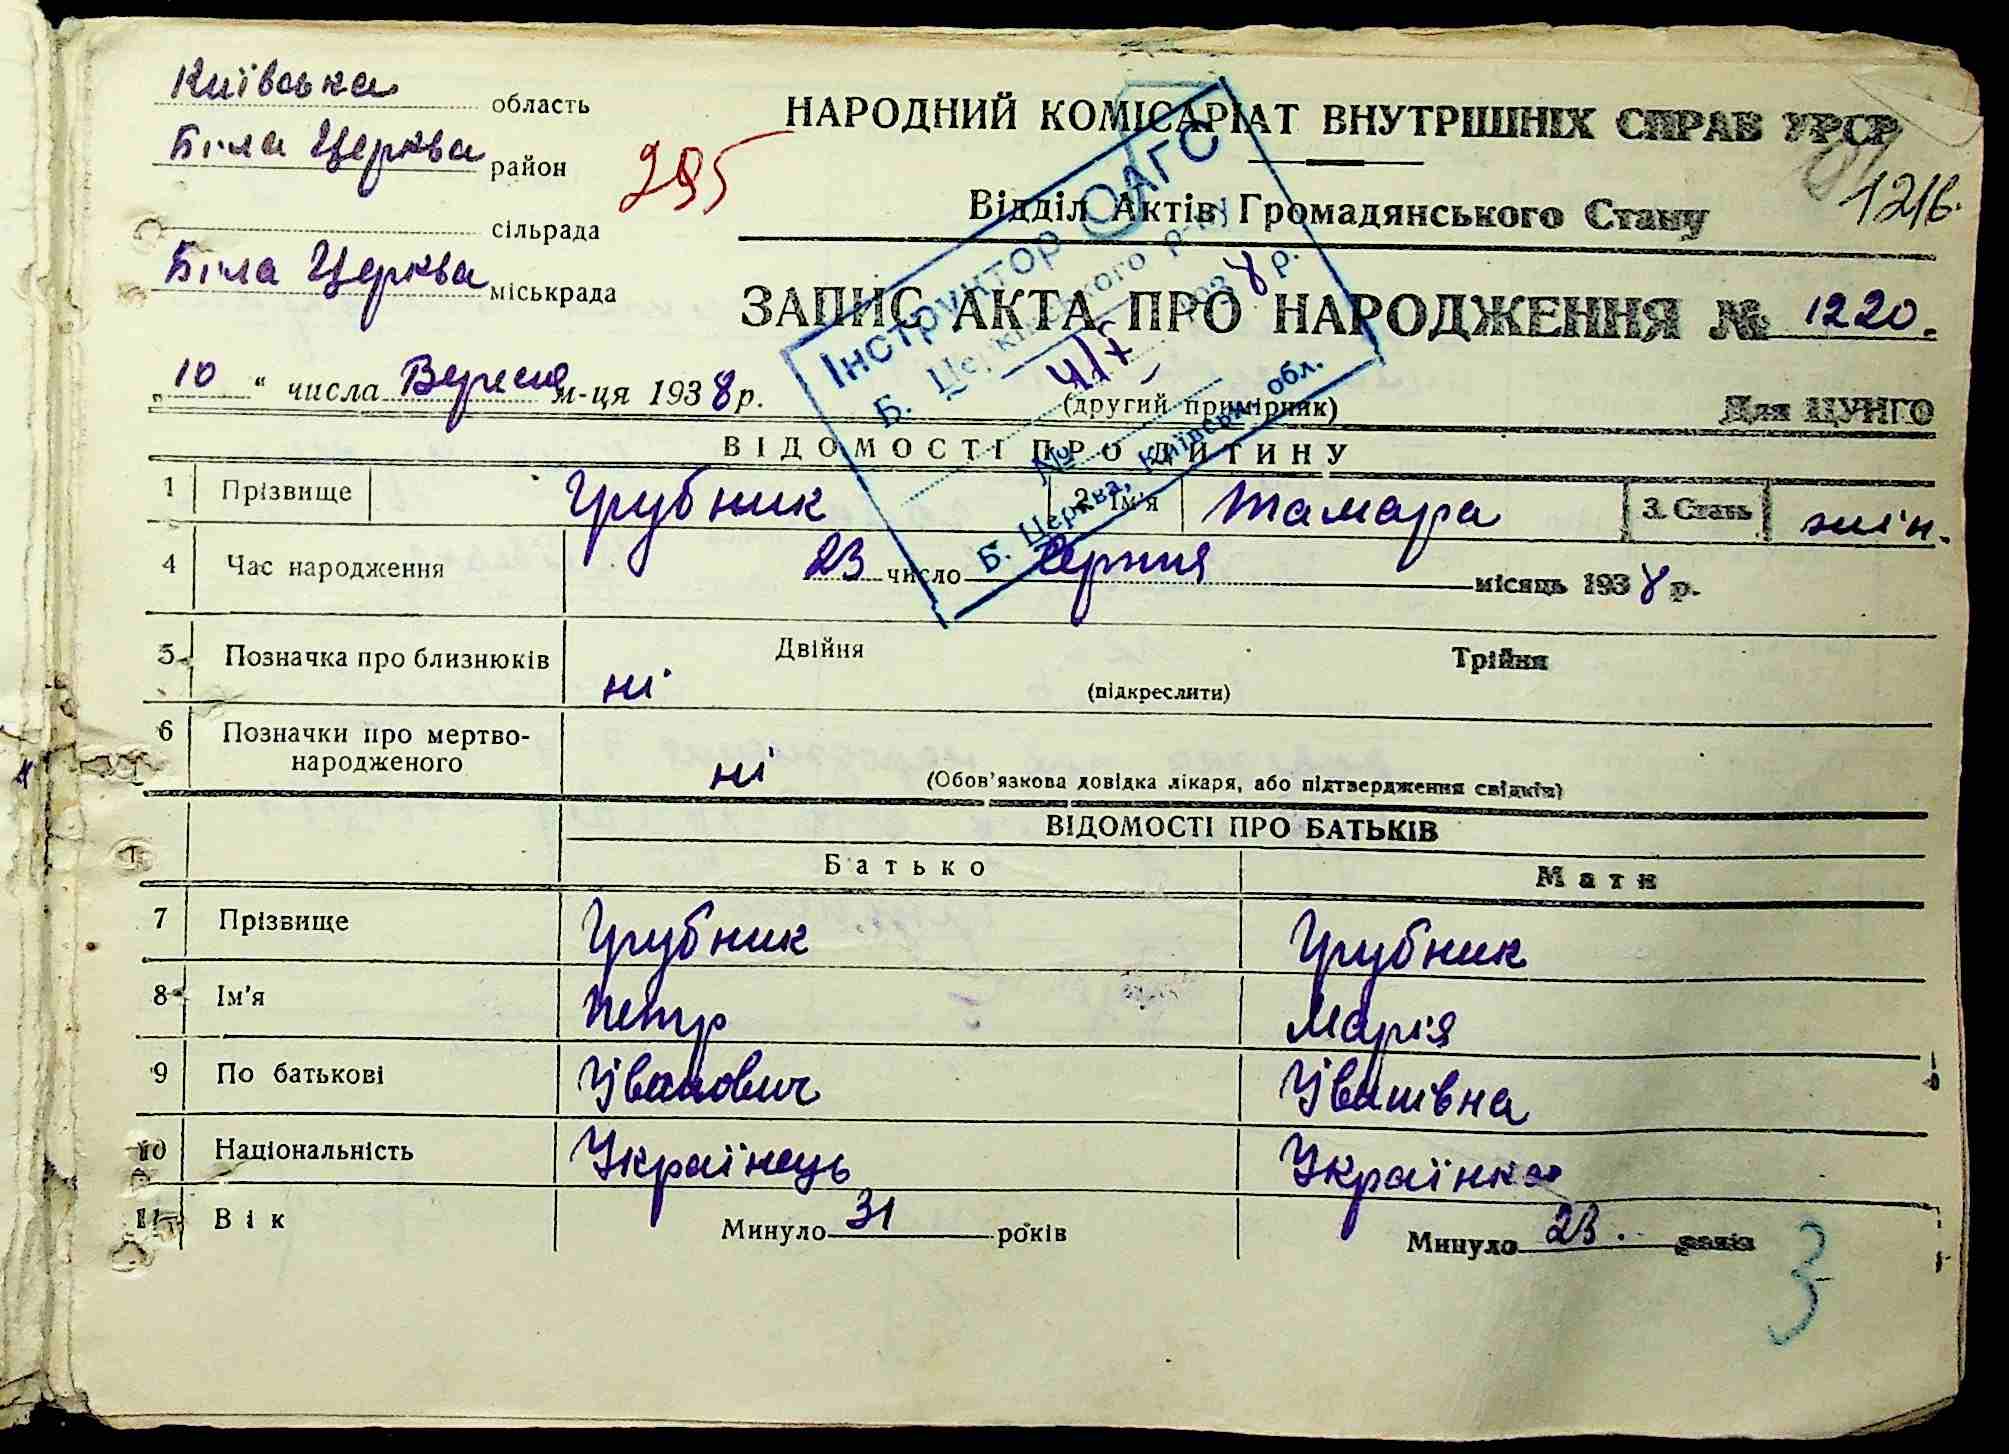 Київська область
Біла Церква район
сільрада
Біла Церква міськрада
295
НАРОДНИЙ КОМІСАРІАТ ВНУТРІШНІХ СПРАВ УРСР
Відділ Актів Громадянського Стану
1216.
ЗАПИС АКТА ПРО НАРОДЖЕННЯ № 1220.
"10" числа Вересня м-ця 1938 р.
(другий примірник)
Для ЦУНГО
Інструктор ОАГС
Б. Церківського р-ну
1938 р.
№
Б. Церква, Київськ. обл.
ВІДОМОСТІ ПРО ДИТИНУ
1 Прізвище Грубник 2. Ім'я Тамара 3. Стать жін.
4 Час народження 23 число Серпня місяць 1938 р.
5 Позначка про близнюків ні Двійня (підкреслити) Трійня
6 Позначки про мертво-
народженого ні (Обов'язкова довідка лікаря, або підтвердження свідків)
ВІДОМОСТІ ПРО БАТЬКІВ
Батько Мати
7 Прізвище Грубник Грубник
8 Ім'я Петр Марія
9 По батькові Іванович Іванівна
10 Національність Українець Українка
11 Вік Минуло 31 років Минуло 23. років
3